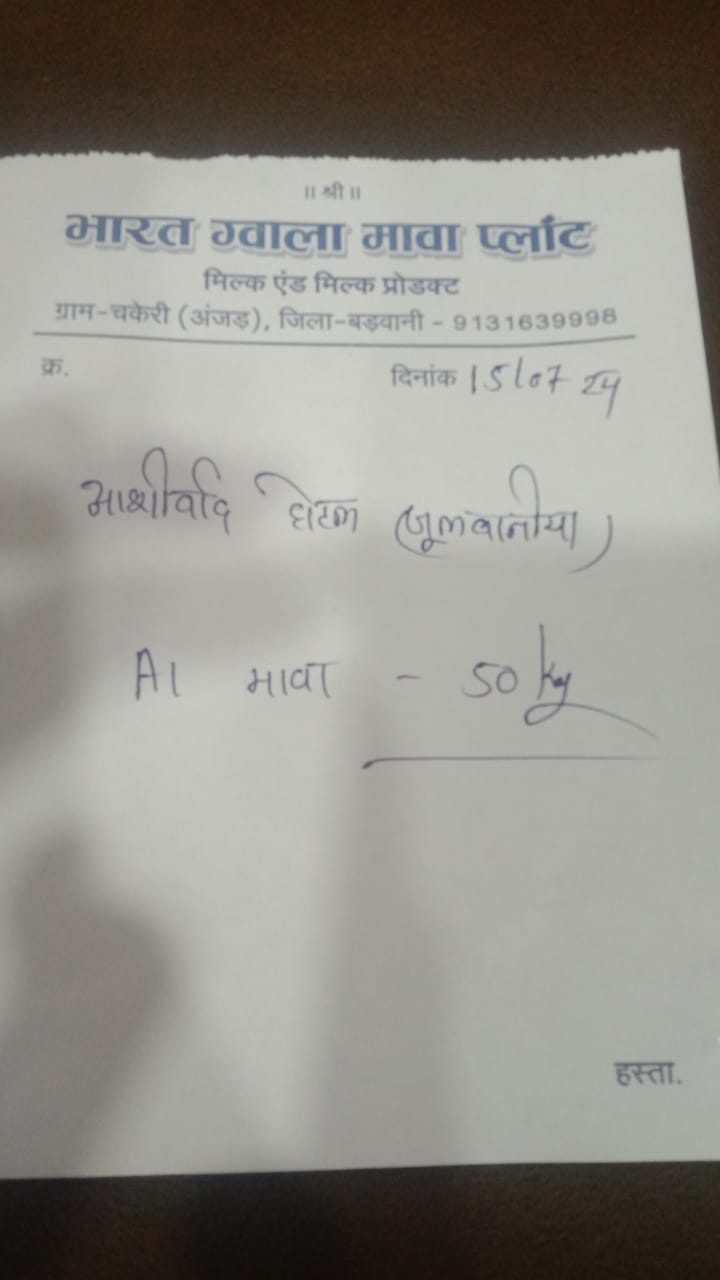 ॥ श्री ॥
भारत ग्वाला मावा प्लांट
मिल्क एंड मिल्क प्रोडक्ट
ग्राम-चकेरी (अंजड़), जिला-बड़वानी - 9131639998
क्र. दिनांक 15/07 24
आशीर्वाद होटल (जूलवानीया)
A1 मावा - 50 kg
हस्ता.